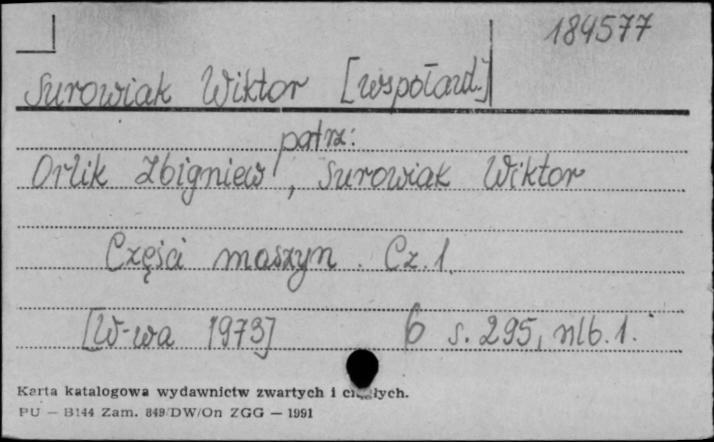 184577
Surowiak Wiktor [współaut.]
patrz:
Orlik Zbigniew, Surowiak Wiktor
Części maszyn. Cz. 1.
[W-wa 1973] 6 s. 295, nlb. 1.
Karta katalogowa wydawnictw zwartych i ciągłych.
PU — B144 Zam. 849/DW/On ZGG — 1991